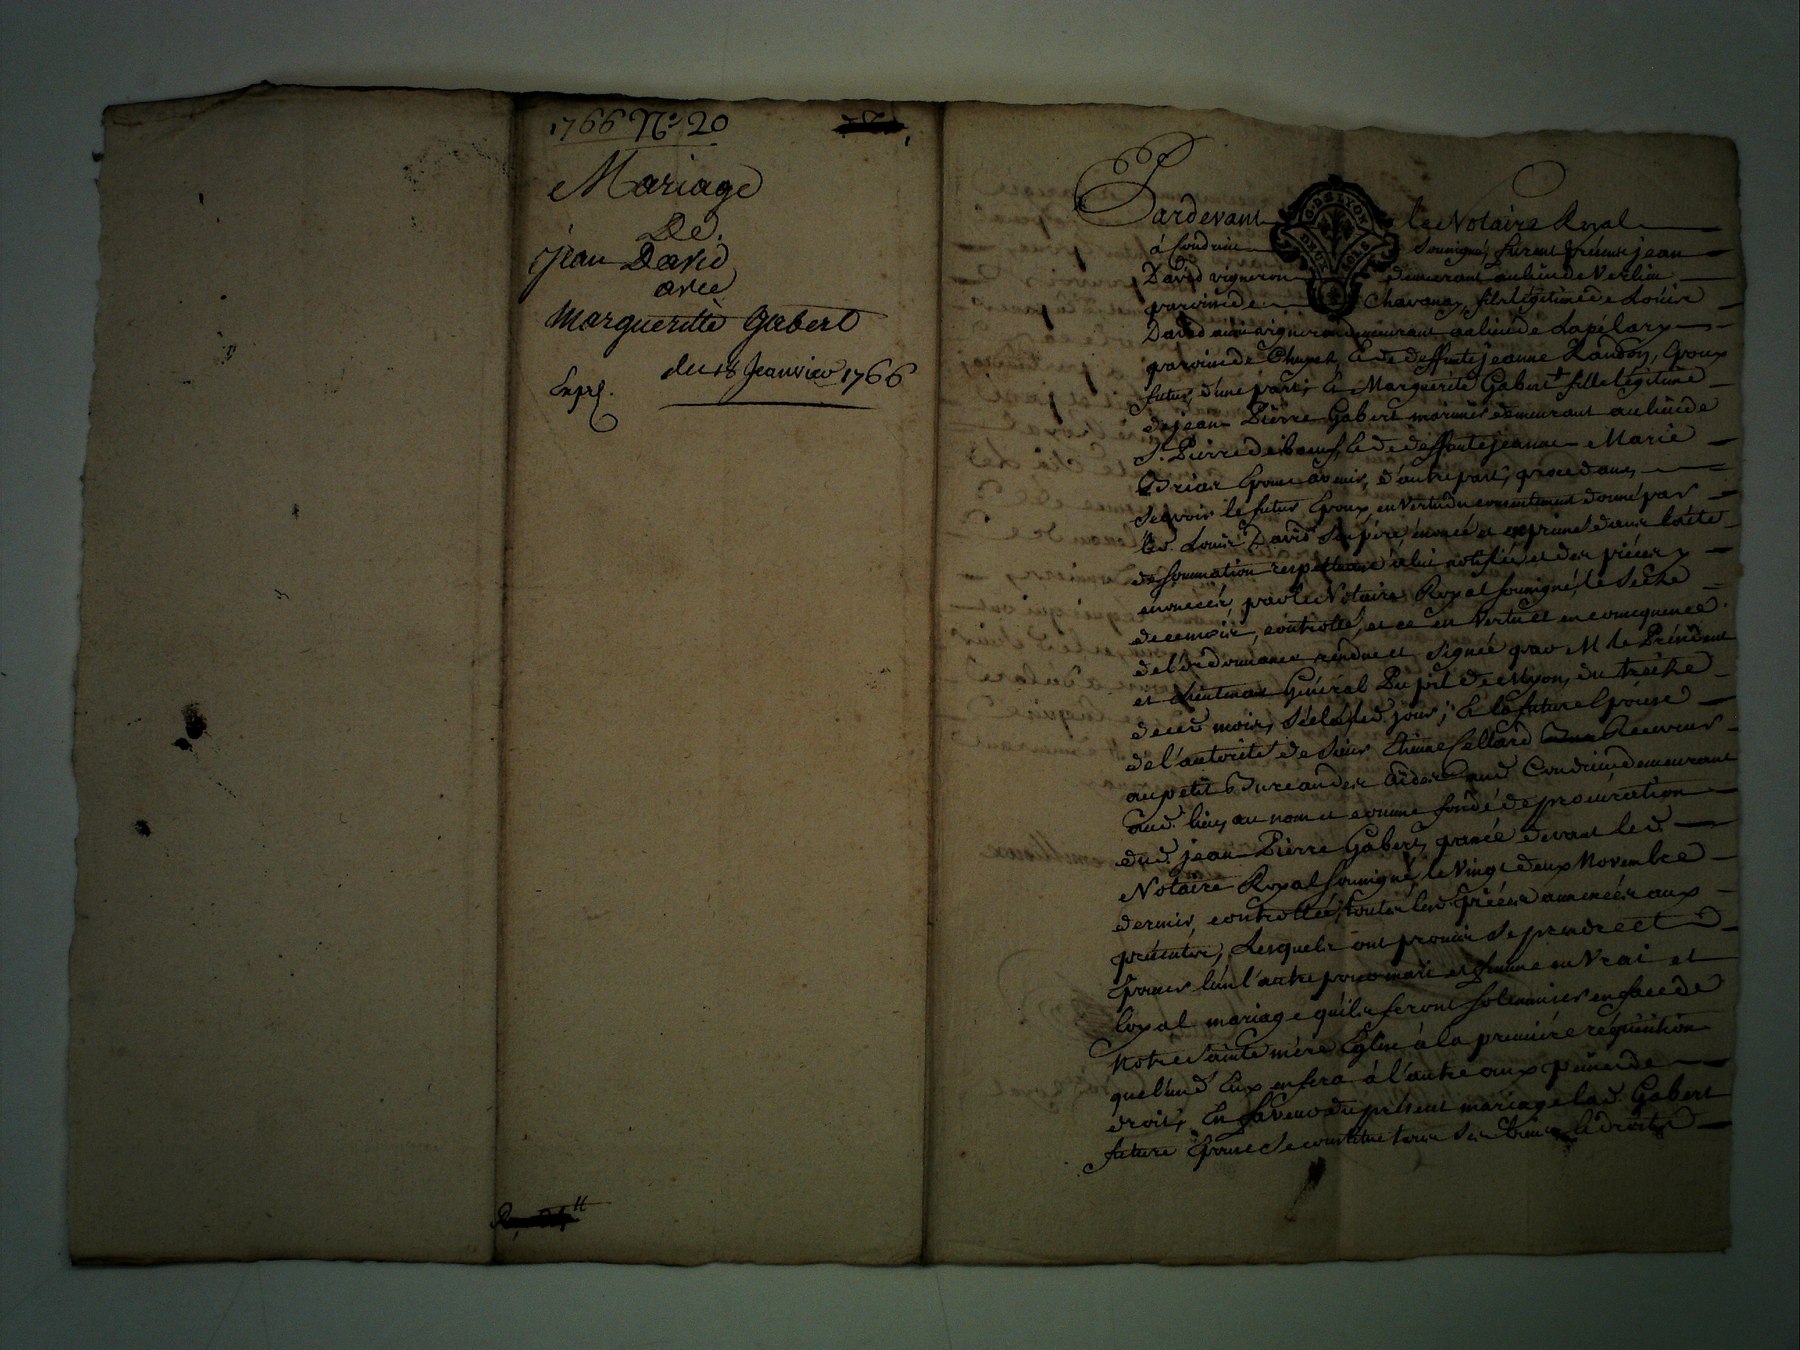 1766 N.° 20
Mariage
De
jean David
avec
Marguerite Gabert
du 18 Jeanvier 1766
Expéd.
Pardevant le Notaire Royal
à Condrieu soussigné, furent présents jean
David vigneron demeurant au lieu de Verlieu
parroisse de Chavanay, fils légitime de Louis
David aussi vigneron demeurant au lieu de
parroisse de Chuyer, & de deffunte jeanne Randon, Epoux
futur, d'une part; & Marguerite Gabert fille légitime
de jean Pierre Gabert marinier demeurant au lieu de
S.t Pierre de boeuf, & de deffunte jeanne Marie
Epouse avenir, d'autre part; procedant,
sçavoir le futur Epoux, en vertu du consentement donné par
led. Louis David son père, énoncé et exprimé dans l'acte
de sommation respectueuse à lui notifiée et des pièces y
énoncées, par le Notaire Royal soussigné, le seize
de ce mois, controllé, et ce en vertu et en consequence
de l'ordonnance rendue et signée par M. le Président
et Lieutenant Général de Lyon, du treize
de ced. mois, scélée led. jour; & la future Epouse
de l'autorité de sieur Etienne Cellard Receveur
au petit Bureau des Aides aud. Condrieu demeurant
aud. lieu, au nom et comme fondé de procuration
dud. jean Pierre Gabert, passée devant led.
Notaire Royal soussigné, le vingt deux Novembre
dernier, controllée, toutes lesd. pièces annexées aux
présentes, Lesquels ont promis se prendre et
Epouser l'un l'autre pour mari et femme en vrai et
loyal mariage qu'ils feront solemniser en face de
Notre Sainte mère Eglise à la première réquisition
que l'un d'Eux en fera à l'autre aux peines de
droit; En faveur du présent mariage lad. Gabert
future Epouse se constitue tous ses biens & droits